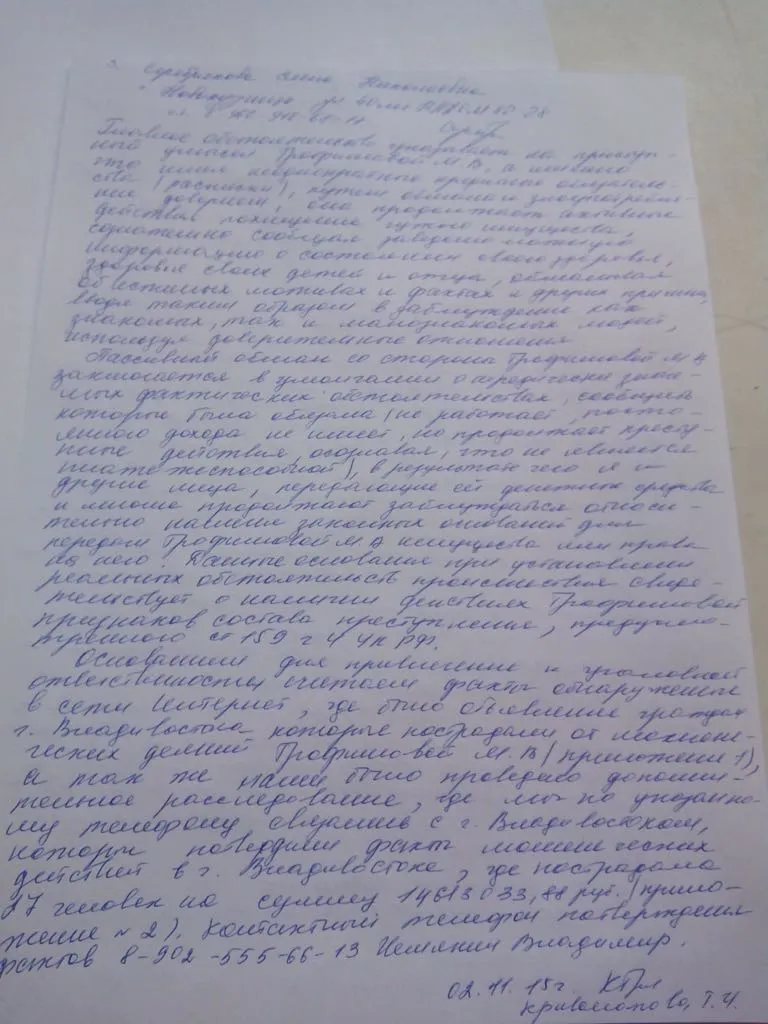 Серебрякова Елена Николаевна
г. Новокузнецк ул 40 лет ВЛКСМ
Главное обстоятельство указывает на преступ-
ный умысел Трофимовой М.В, а именно
что имея неоднократно прежние обязатель-
ства (расписки), путем обмана и злоупотребле-
ние доверием, она продолжает активные
действия похищение чужого имущества,
сознательно сообщая заведомо ложную
информацию о состоянии своего здоровья,
здоровья своих детей и отца, обманывая
об истинных мотивах и фактах и других причин,
вводя таким образом в заблуждение как
знакомых, так и малознакомых людей,
используя доверительные отношения
Пассивный обман со стороны Трофимовой М В
заключается в умолчании о юридически значи-
мых фактических обстоятельствах, сообщить
которые была обязана (не работает, посто-
янного дохода не имеет, но продолжает престу-
пные действия, осознавая, что не является
платежеспособной), в результате чего я и
другие лица, передающие ей денежные средства
и многие продолжают заблуждаться относи-
тельно наличия законных оснований для
передачи Трофимовой М.В имущества или права
на него. Данные основания при установлении
реальных обстоятельств происшествия свиде-
тельствует о наличии действиях Трофимовой
признаков состава преступления, предусмо-
тренного ст 159 ч 4 УК РФ.
Основанием для привлечения к уголовной
ответственности считаем факты обнаружения
в сети Интернет, где было объявление граждан
г. Владивостока, которые пострадали от мошенни-
ческих деяний Трофимовой М.В (приложение 1),
а так же нами было проведено дополни-
тельное расследование, где мы по указанно-
му телефону связались с г. Владивостоком,
которые подтвердили факты мошеннических
действий в г. Владивостоке, где пострадало
27 человек на сумму 14613033,88 руб. (прило-
жение №2). Контактный телефон потверждения
фактов 8-902-555-66-13 Немякин Владимир.
02.11.15г.
Кривоносова, Т.Н.